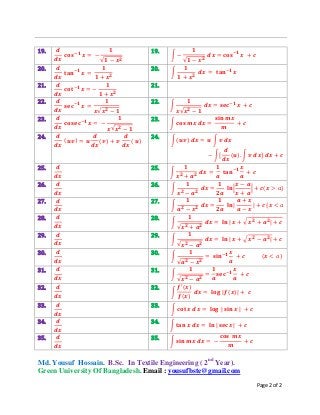 19. d/dx cos⁻¹ x = − 1/√(1 − x²) 19. ∫ − 1/√(1 − x²) dx = cos⁻¹ x + c
20. d/dx tan⁻¹ x = 1/(1 + x²) 20. ∫ 1/(1 + x²) dx = tan⁻¹ x
21. d/dx cot⁻¹ x = − 1/(1 + x²) 21.
22. d/dx sec⁻¹ x = 1/(x√(x² − 1)) 22. ∫ 1/(x√(x² − 1)) dx = sec⁻¹ x + c
23. d/dx cosec⁻¹ x = − 1/(x√(x² − 1)) 23. ∫ cos mx dx = sin mx/m + c
24. d/dx (uv) = u d/dx (v) + v d/dx (u) 24. ∫ (uv) dx = u ∫ v dx
− ∫ [d/dx (u). ∫ v dx] dx + c
25. d/dx 25. ∫ 1/(x² + a²) dx = 1/a tan⁻¹ x/a + c
26. d/dx 26. ∫ 1/(x² − a²) dx = 1/2a ln|(x − a)/(x + a)| + c (x > a)
27. d/dx 27. ∫ 1/(a² − x²) dx = 1/2a ln|(a + x)/(a − x)| + c (x < a
28. d/dx 28. ∫ 1/√(x² + a²) dx = ln |x + √(x² + a²)| + c
29. d/dx 29. ∫ 1/√(x² − a²) dx = ln |x + √(x² − a²)| + c
30. d/dx 30. ∫ 1/√(a² − x²) = sin⁻¹ x/a + c (x < a)
31. d/dx 31. ∫ 1/√(x² − a²) = 1/a sec⁻¹ x/a + c
32. d/dx 32. ∫ f′(x)/f(x) dx = log |f(x)| + c
33. d/dx 33. ∫ cot x dx = log | sin x | + c
34. d/dx 34. ∫ tan x dx = ln |sec x| + c
35. d/dx 35. ∫ sin mx dx = − cos mx/m + c
Md. Yousuf Hossain. B.Sc. In Textile Engineering ( 2nd Year).
Green University Of Bangladesh. Email : yousufbste@gmail.com
Page 2 of 2